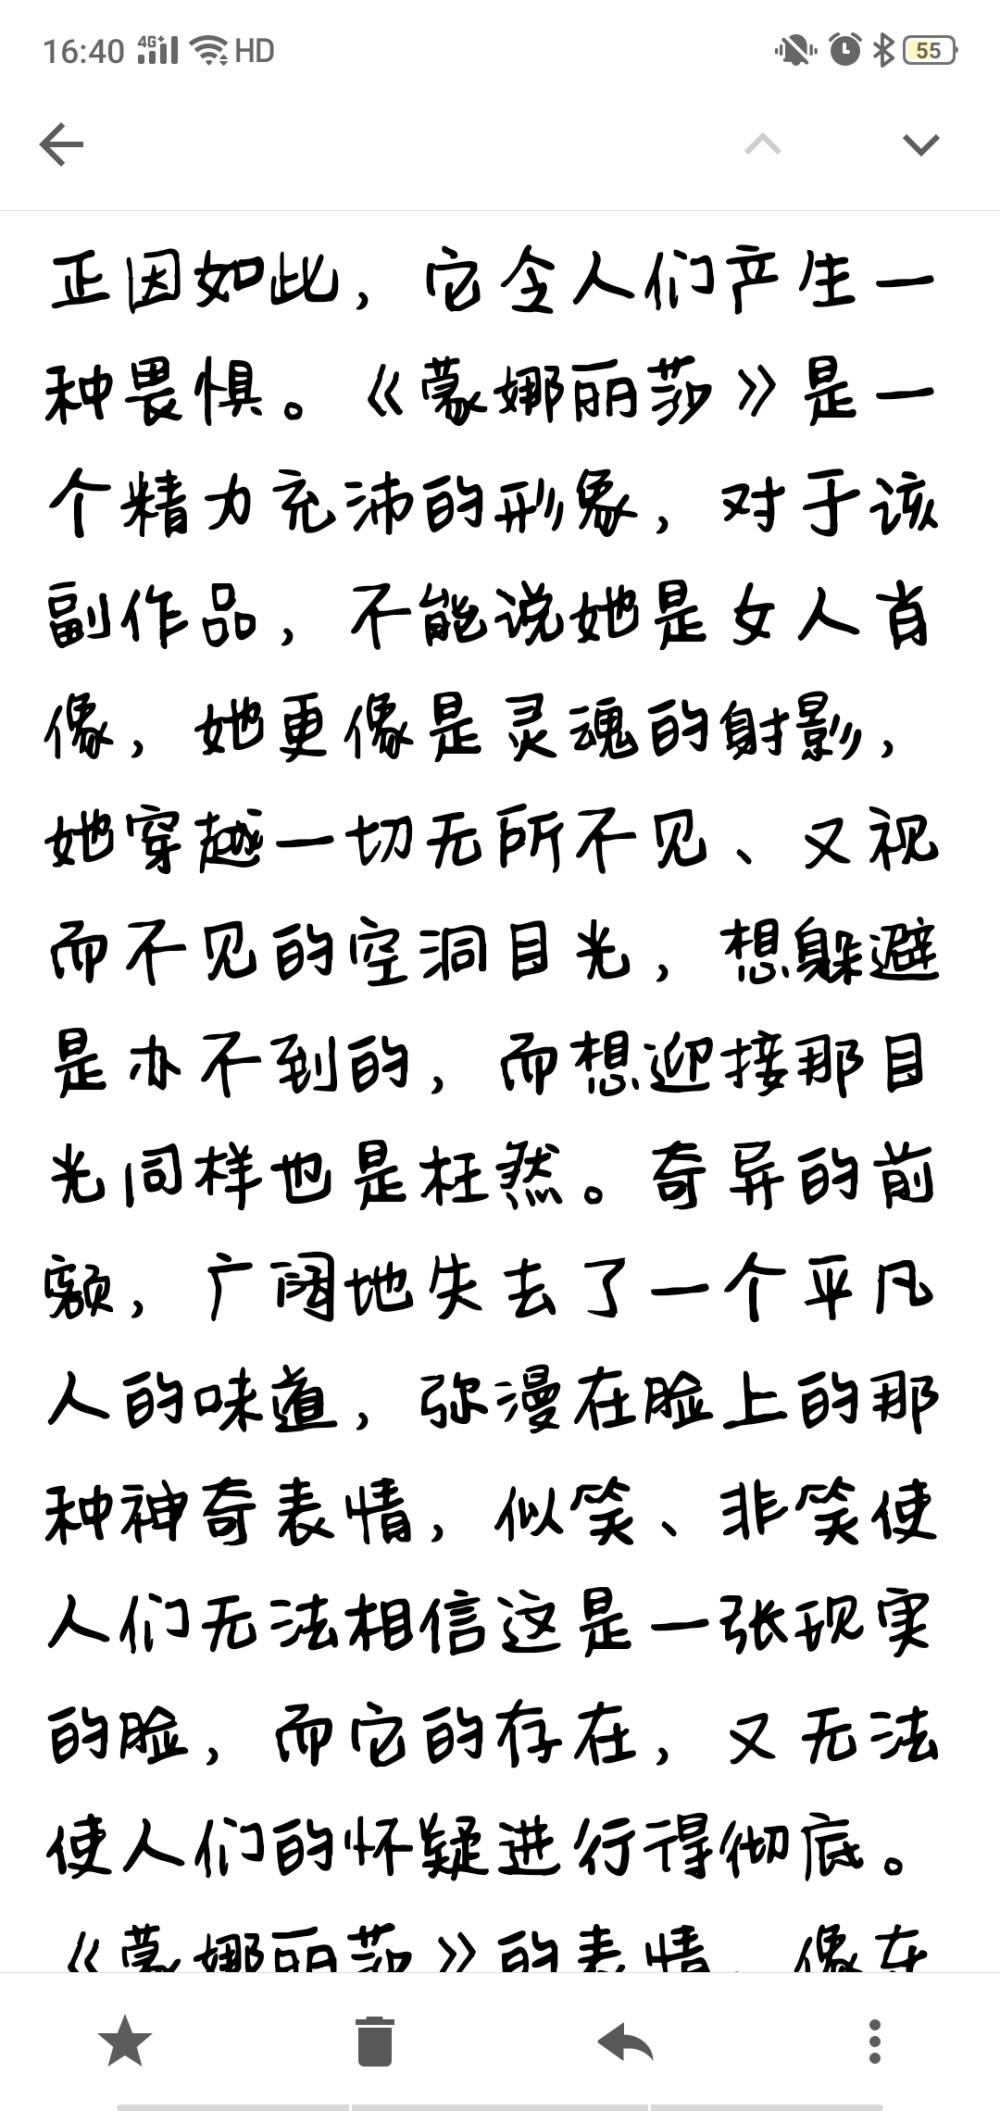 16:40 4G+ HD 55
正因如此，它令人们产生一
种畏惧。《蒙娜丽莎》是一
个精力充沛的形象，对于该
副作品，不能说她是女人肖
像，她更像是灵魂的射影，
她穿越一切无所不见、又视
而不见的空洞目光，想躲避
是办不到的，而想迎接那目
光同样也是枉然。奇异的前
额，广阔地失去了一个平凡
人的味道，弥漫在脸上的那
种神奇表情，似笑、非笑使
人们无法相信这是一张现实
的脸，而它的存在，又无法
使人们的怀疑进行得彻底。
《蒙娜丽莎》的表情，像在